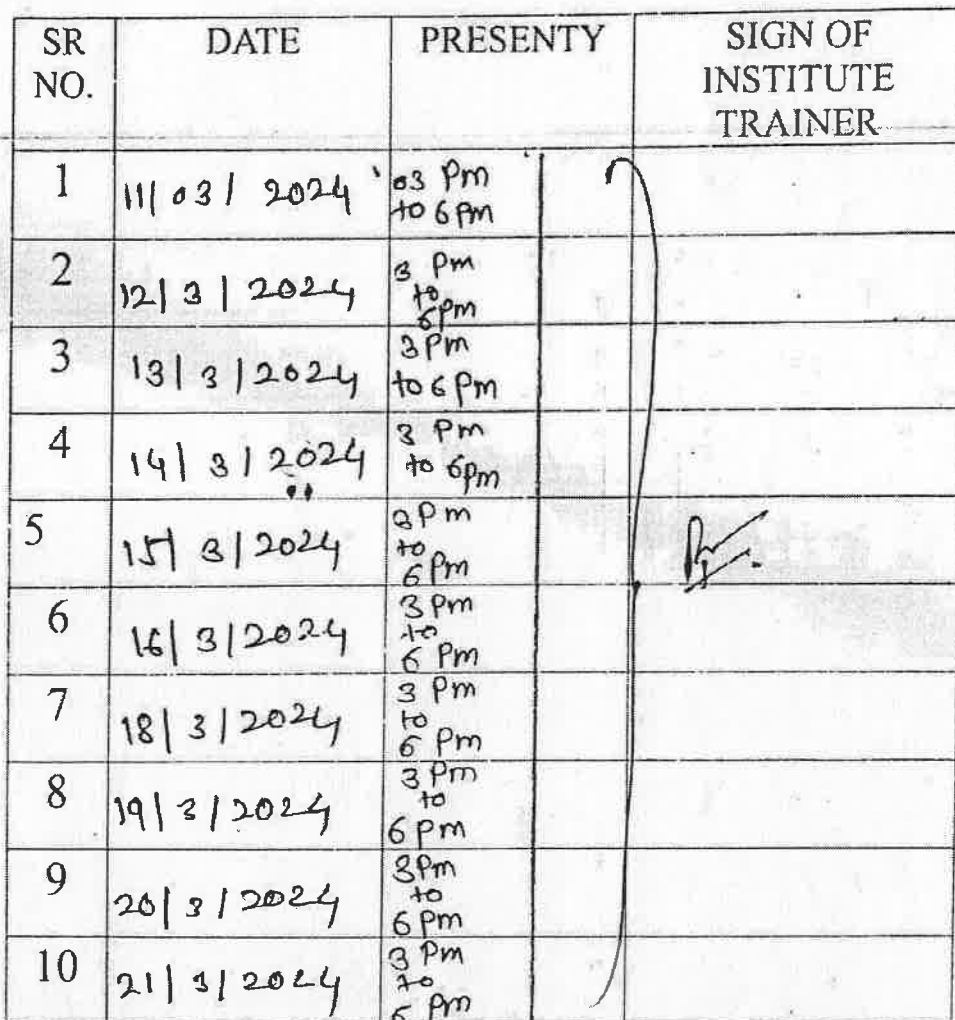 SR NO. DATE PRESENTY SIGN OF INSTITUTE TRAINER
1 11/03/2024 03 Pm to 6 pm
2 12/3/2024 3 Pm to 6pm
3 13/3/2024 3Pm to 6 Pm
4 14/3/2024 3 Pm to 6pm
5 15/3/2024 3Pm to 6 Pm
6 16/3/2024 3Pm to 6 Pm
7 18/3/2024 3 Pm to 6 Pm
8 19/3/2024 3Pm to 6 Pm
9 20/3/2024 3Pm to 6 Pm
10 21/3/2024 3 Pm to 6 Pm